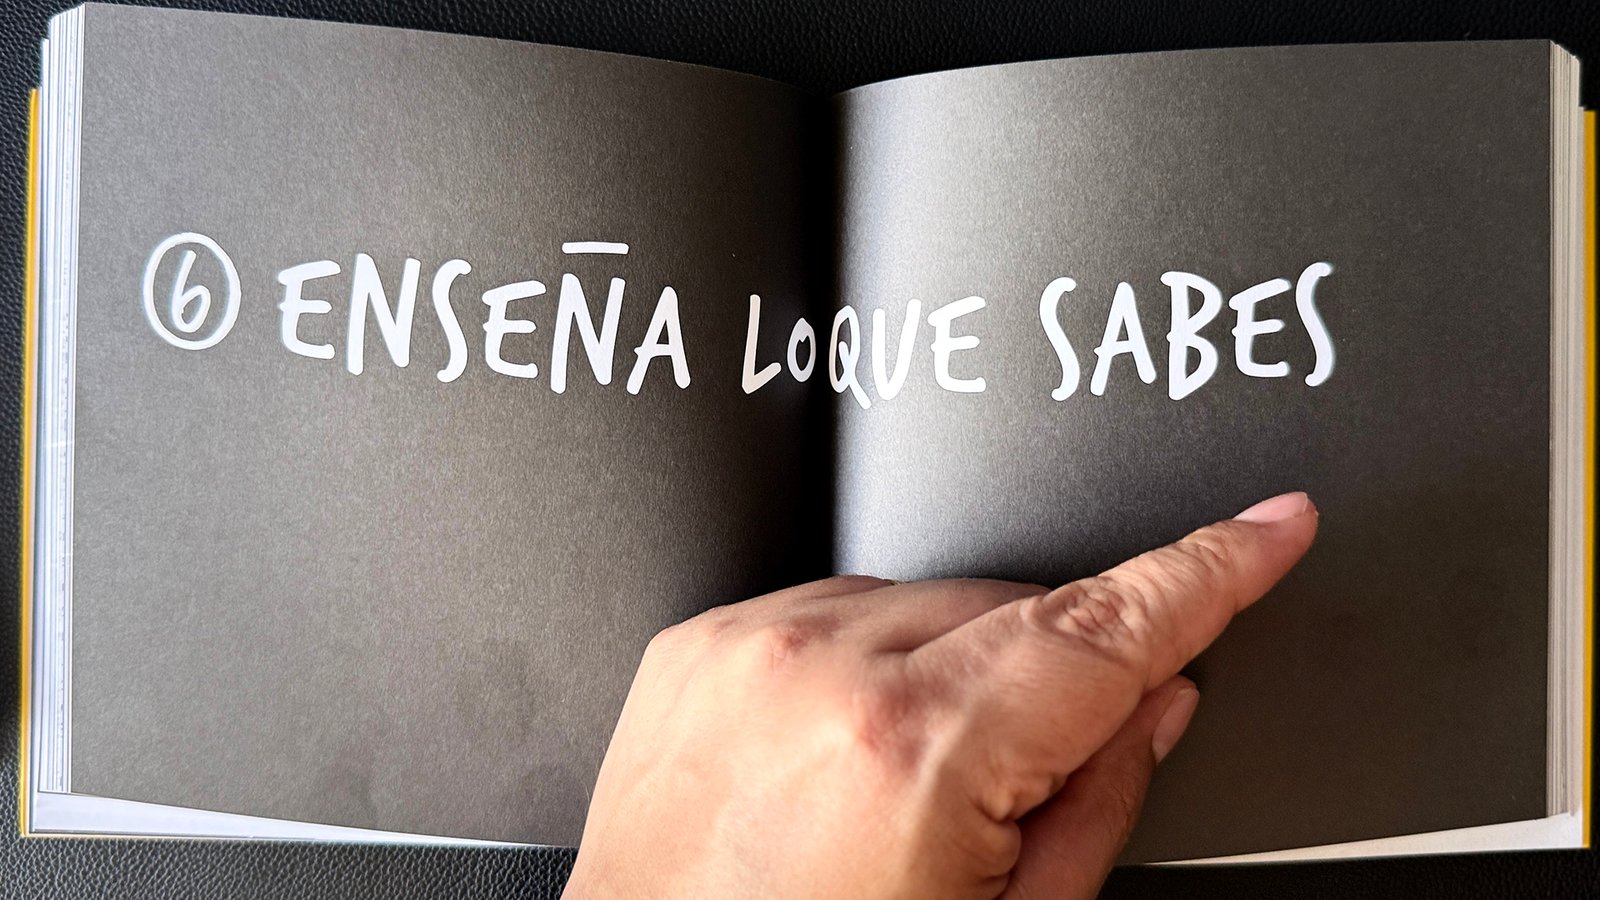 6 ENSEÑA LO QUE SABES